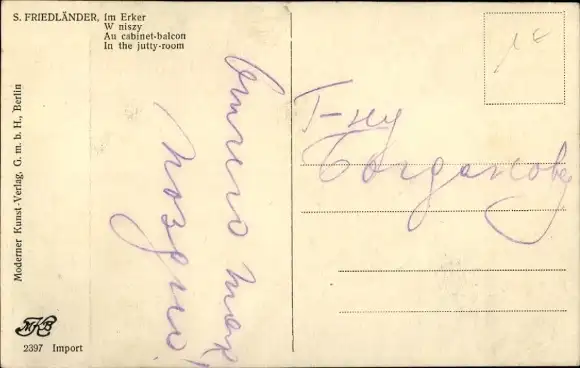 S. FRIEDLÄNDER, Im Erker
W niszy
Au cabinet-balcon
In the jutty-room
Moderner Kunst-Verlag, G. m. b. H., Berlin
MKB
2397 Import
Отчего так
поздно!
Г-ну
Богданову
1€